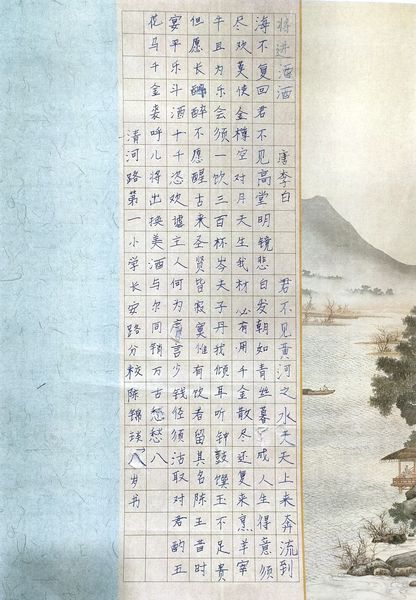 将进酒酒 唐李白 君不见黄河之水天天上来奔流到
海不复回君不见高堂明镜悲白发朝如青丝暮成人生得意须
尽欢莫使金樽空对月天生我材必有用千金散尽还复来烹羊宰
牛且为乐会须一饮三百杯岑夫子丹倾耳听钟鼓馔玉不足贵
但愿长醉不愿醒古来圣贤皆寂寞惟有饮者留其名陈王昔时
宴平乐斗酒十千恣欢墟主人何为言少钱径须沽取对君酌五
花马千金裘呼儿将出换美酒与尔同销万古愁愁八
清河路第一小学长安路分校陈锦八岁书